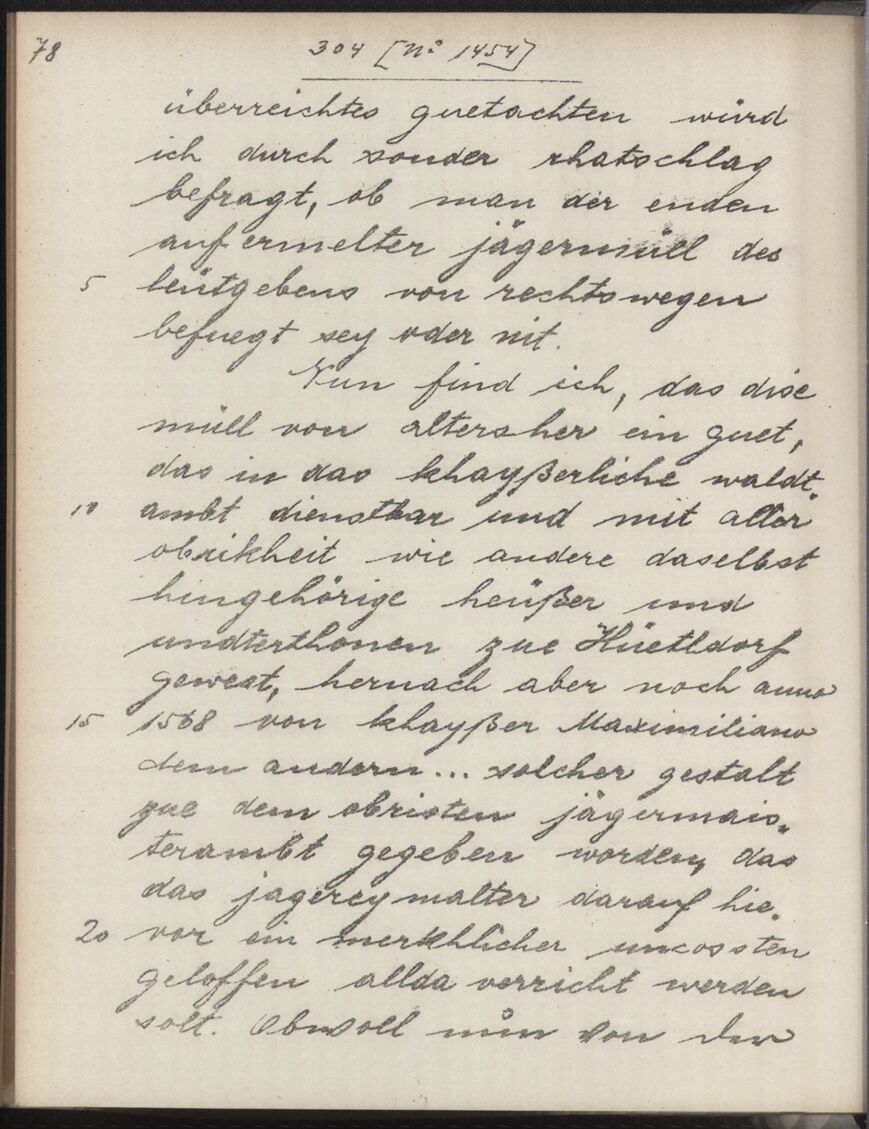 78
304 [No 1454]
überreichtes guetachten würd
ich durch sonder rhatschlag
befragt, ob man der enden
auf ermelter jägermüll des
5 leütgebens von rechtswegen
befuegt sey oder nit.
Nun find ich, das dise
müll von altersher ein guet,
das in das khayßerliche waldt„
10 ambt dienstbar und mit aller
obrikheit wie andere daselbst
hingehörige heüßer und
undterthonen zue Hüetldorf
gewest, hernach aber noch anno
15 1568 von khayßer Maximiliano
dem andern... solcher gestalt
zue dem obristen jägermais„
terambt gegeben worden, das
das jagereymalter darauf hie„
20 vor ein merkhlicher uncossten
geloffen allda verricht werden
solt. Obwoll nun von der